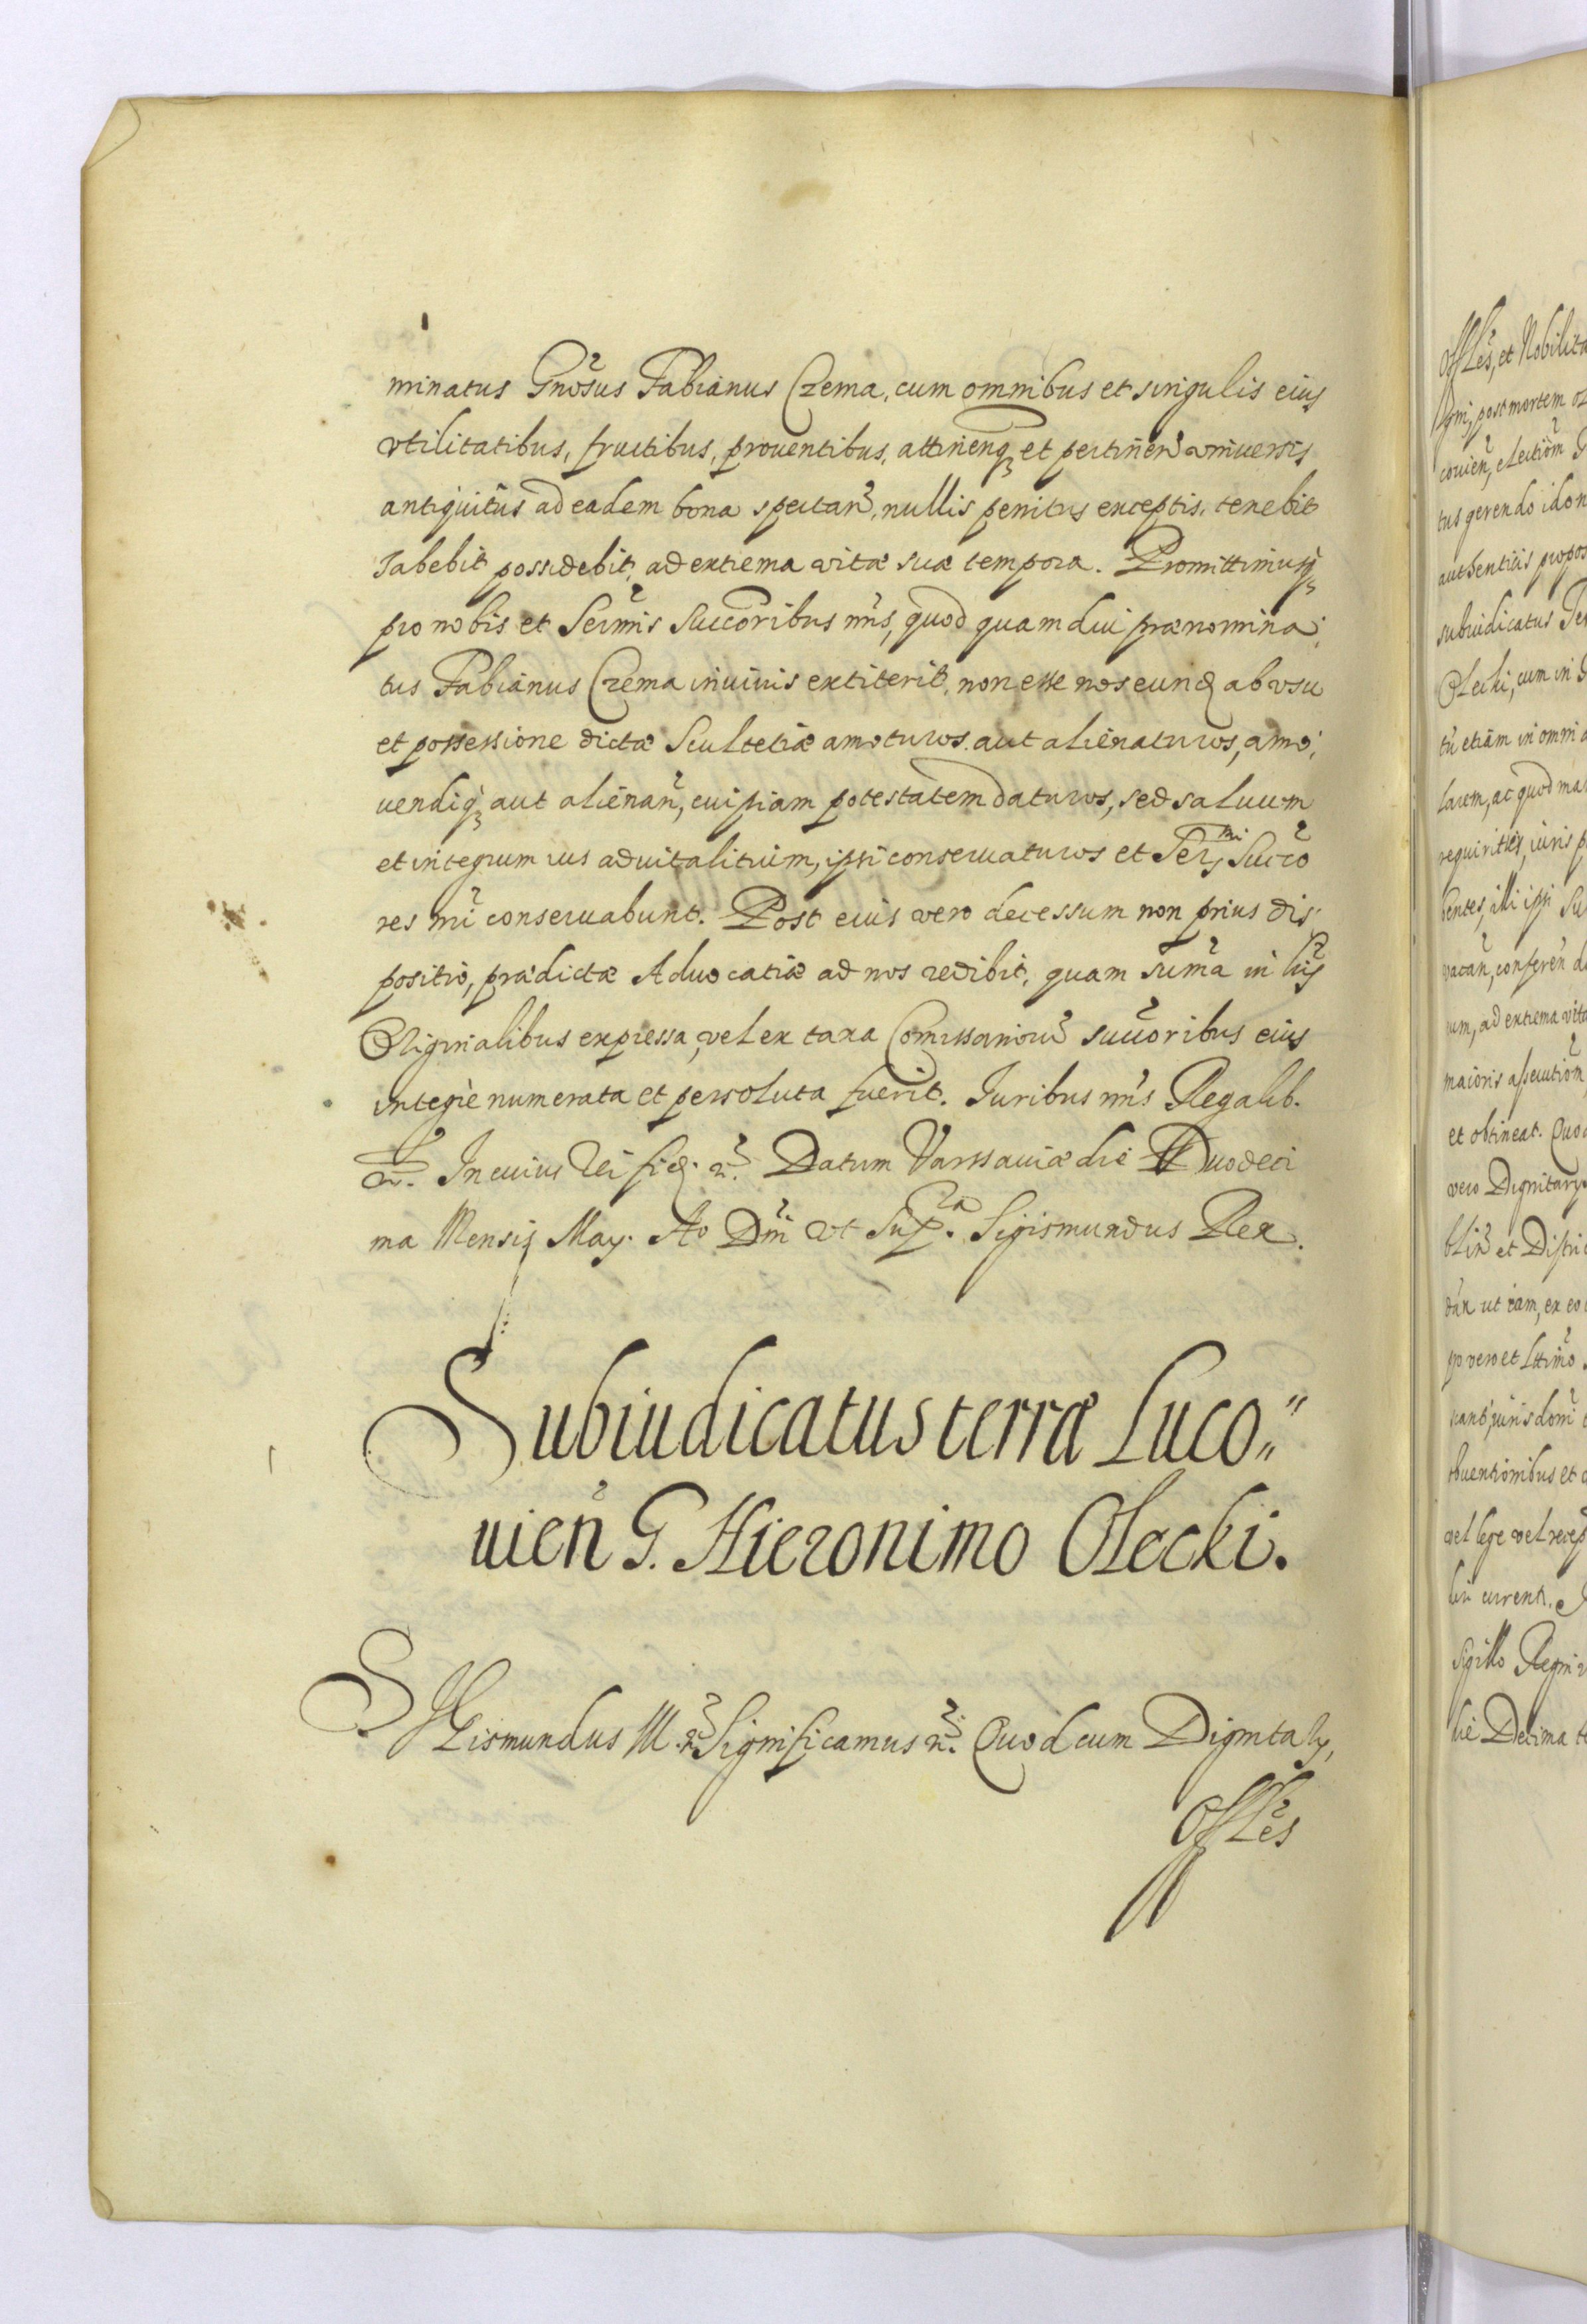 minatus Gnosus Fabianus Czema, cum omnibus et singulis eius
vtilitatibus, fructibus, prouentibus, attinenq; et pertinen vniuersis
antiquitus ad eadem bona spectan, nullis penitus exceptis, tenebit
habebit possidebit, ad extrema vitæ suæ tempora. Promittimusq;
pro nobis et Sermis Succoribus nris, quod quam diu prænomina:
tus Fabianus Czema in viuis extiterit, non esse nos eund ab vsu
et possessione dictæ Scultetiæ amoturos aut alienaturos, amo:
uendiq; aut alienan, cuipiam potestatem daturos, sed saluum
et integrum ius aduitalitium, ipsi conseruaturos et Sermi Succo
res nri conseruabunt. Post eius vero decessum non prius dis:
positio, prædictæ Aduocatiæ ad nos redibit, quam suma in lris
Originalibus expressa, vel ex taxa Comissariorum succoribus eius
integrè numerata et persoluta fuerit. Iuribus nris Regalib.
etc. In cuius rei fid. etc. Datum Varssauiæ die Duodeci
ma Mensis May. Ao Dni vt Supra. Sigismundus Rex.
Subiudicatus terræ Luco"
uien G. Hieronimo Olecki.
SIGismundus III etc. Significamus etc. Quod cum Dignitary,
Offles
Offles, et Nobilita
post mortem
couien, electiom G
tus gerendo idon
authenticis propos
subiudicatus Ter
Olecki, cum in
tu etiam in omni
larem, ac quod ma
requirities, iuris p
bentes, illi ipsi Su
vacan, conferen d
um, ad extrema vita
maioris assecution
et obtineat. Quod
vero Dignitary
blin et Distri
dan ut eam, ex eo
vero et Lttimo
iuris domi
buentionibus et
vel lege vel recep
currenti.
Sigillo Regni
die Decima te